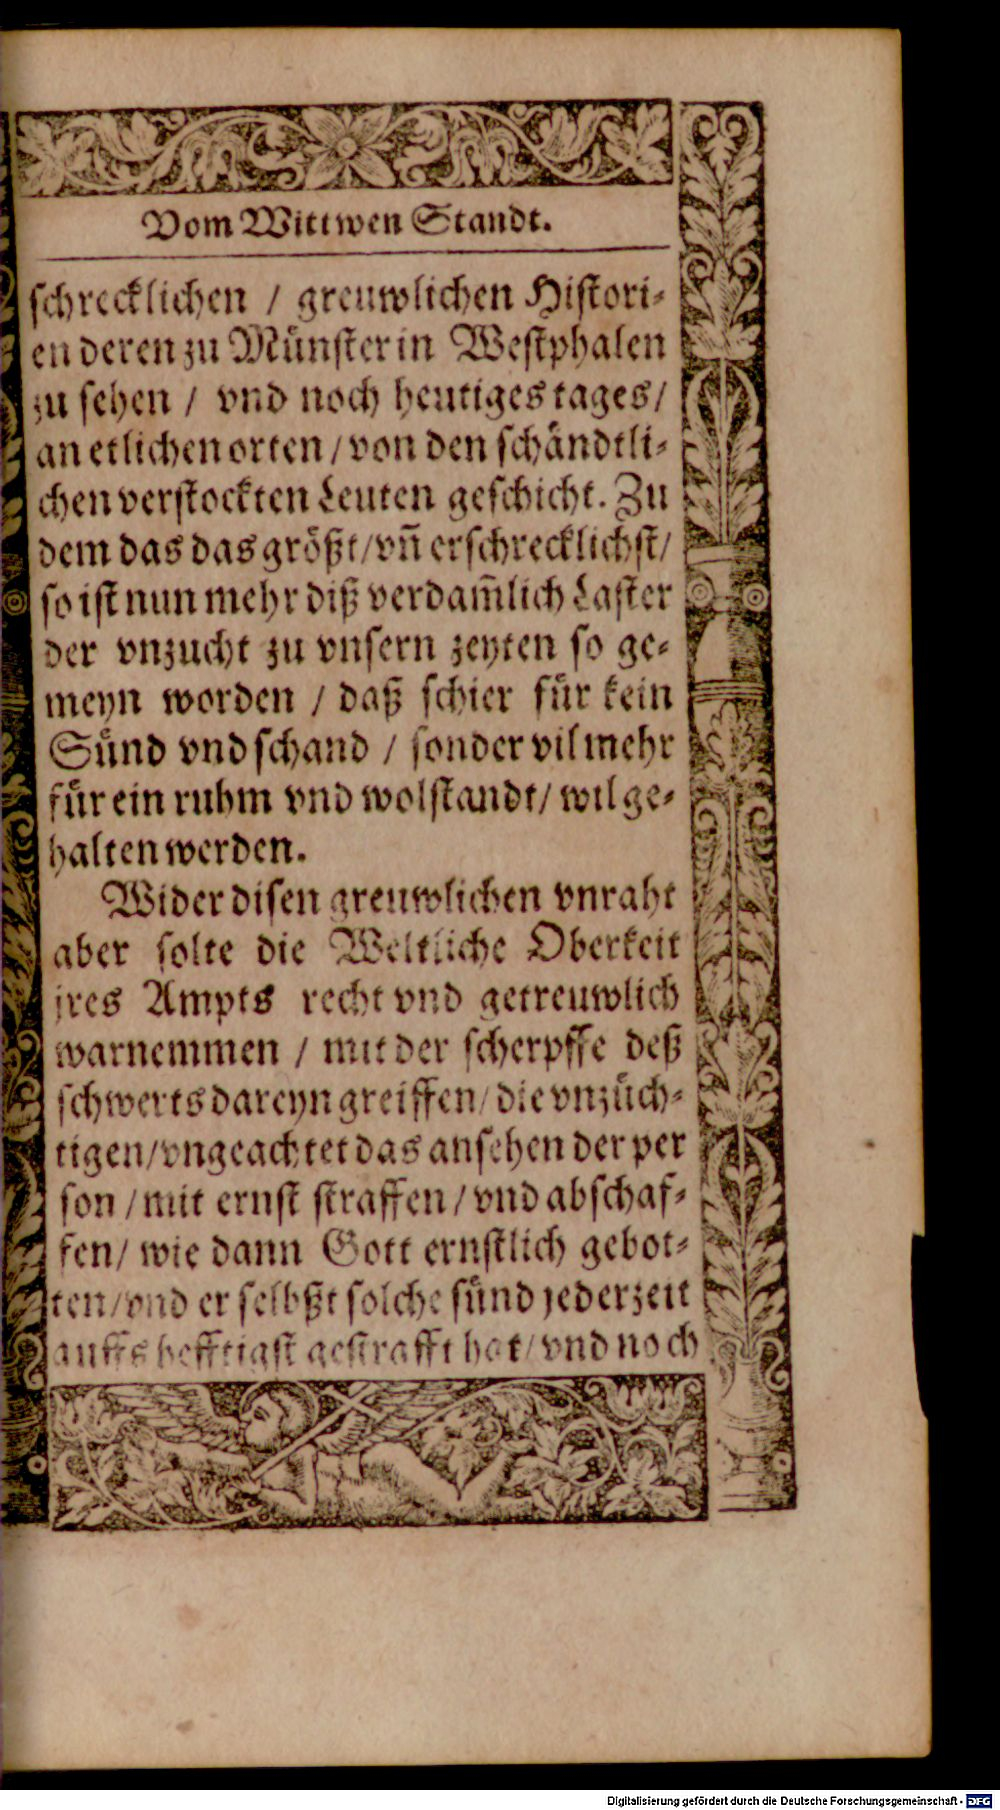 Vom Wittwen Standt.
schrecklichen / greuwlichen Histori-
en deren zu Münster in Westphalen
zu sehen / vnd noch heutiges tages/
an etlichen orten / von den schändtli-
chen verstockten Leuten geschicht. Zu
dem das das größt/vñ erschrecklichst/
so ist nun mehr diß verdam̃lich Laster
der vnzucht zu vnsern zeyten so ge-
meyn worden / daß schier für kein
Sünd vnd schand / sonder vil mehr
für ein ruhm vnd wolstandt/ wil ge-
halten werden.
Wider disen greuwlichen vnraht
aber solte die Weltliche Oberkeit
jres Ampts recht vnd getreuwlich
warnemmen / mit der scherpffe deß
schwerts dareyn greiffen/ die vnzüch-
tigen/vngeachtet das ansehen der per
son / mit ernst straffen / vnd abschaf-
fen/ wie dann Gott ernstlich gebot-
ten/vnd er selbßt solche sünd jederzeit
auffs hefftigst gestrafft hat/ vnd noch
Digitalisierung gefördert durch die Deutsche Forschungsgemeinschaft - DFG